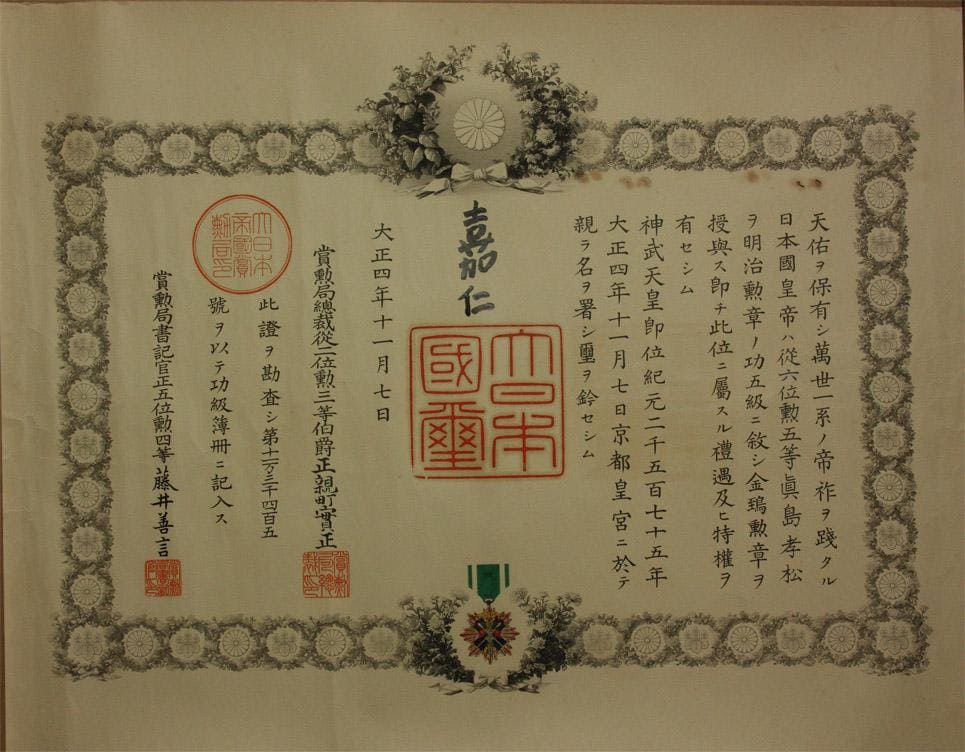 天佑ヲ保有シ萬世一系ノ帝祚ヲ踐タル
日本國皇帝ハ從六位勲五等眞島孝松
ヲ明治勲章ノ功五級ニ敘シ金鵄勲章ヲ
授與ス卽チ此位ニ屬スル禮遇及ヒ特權ヲ
有セシム
神武天皇卽位紀元二千五百七十五年
大正四年十一月七日京都皇宮ニ於テ
親ラ名ヲ署シ璽ヲ鈐セシム
嘉仁
大日本
國璽
大正四年十一月七日
賞勲局總裁從二位勲三等伯爵正親町實正
賞勲局總裁印
此證ヲ勘査シ第十一万三千四百五
號ヲ以テ功級簿冊ニ記入ス
大日本
帝國賞
勲局印
賞勲局書記官正五位勲四等藤井善言